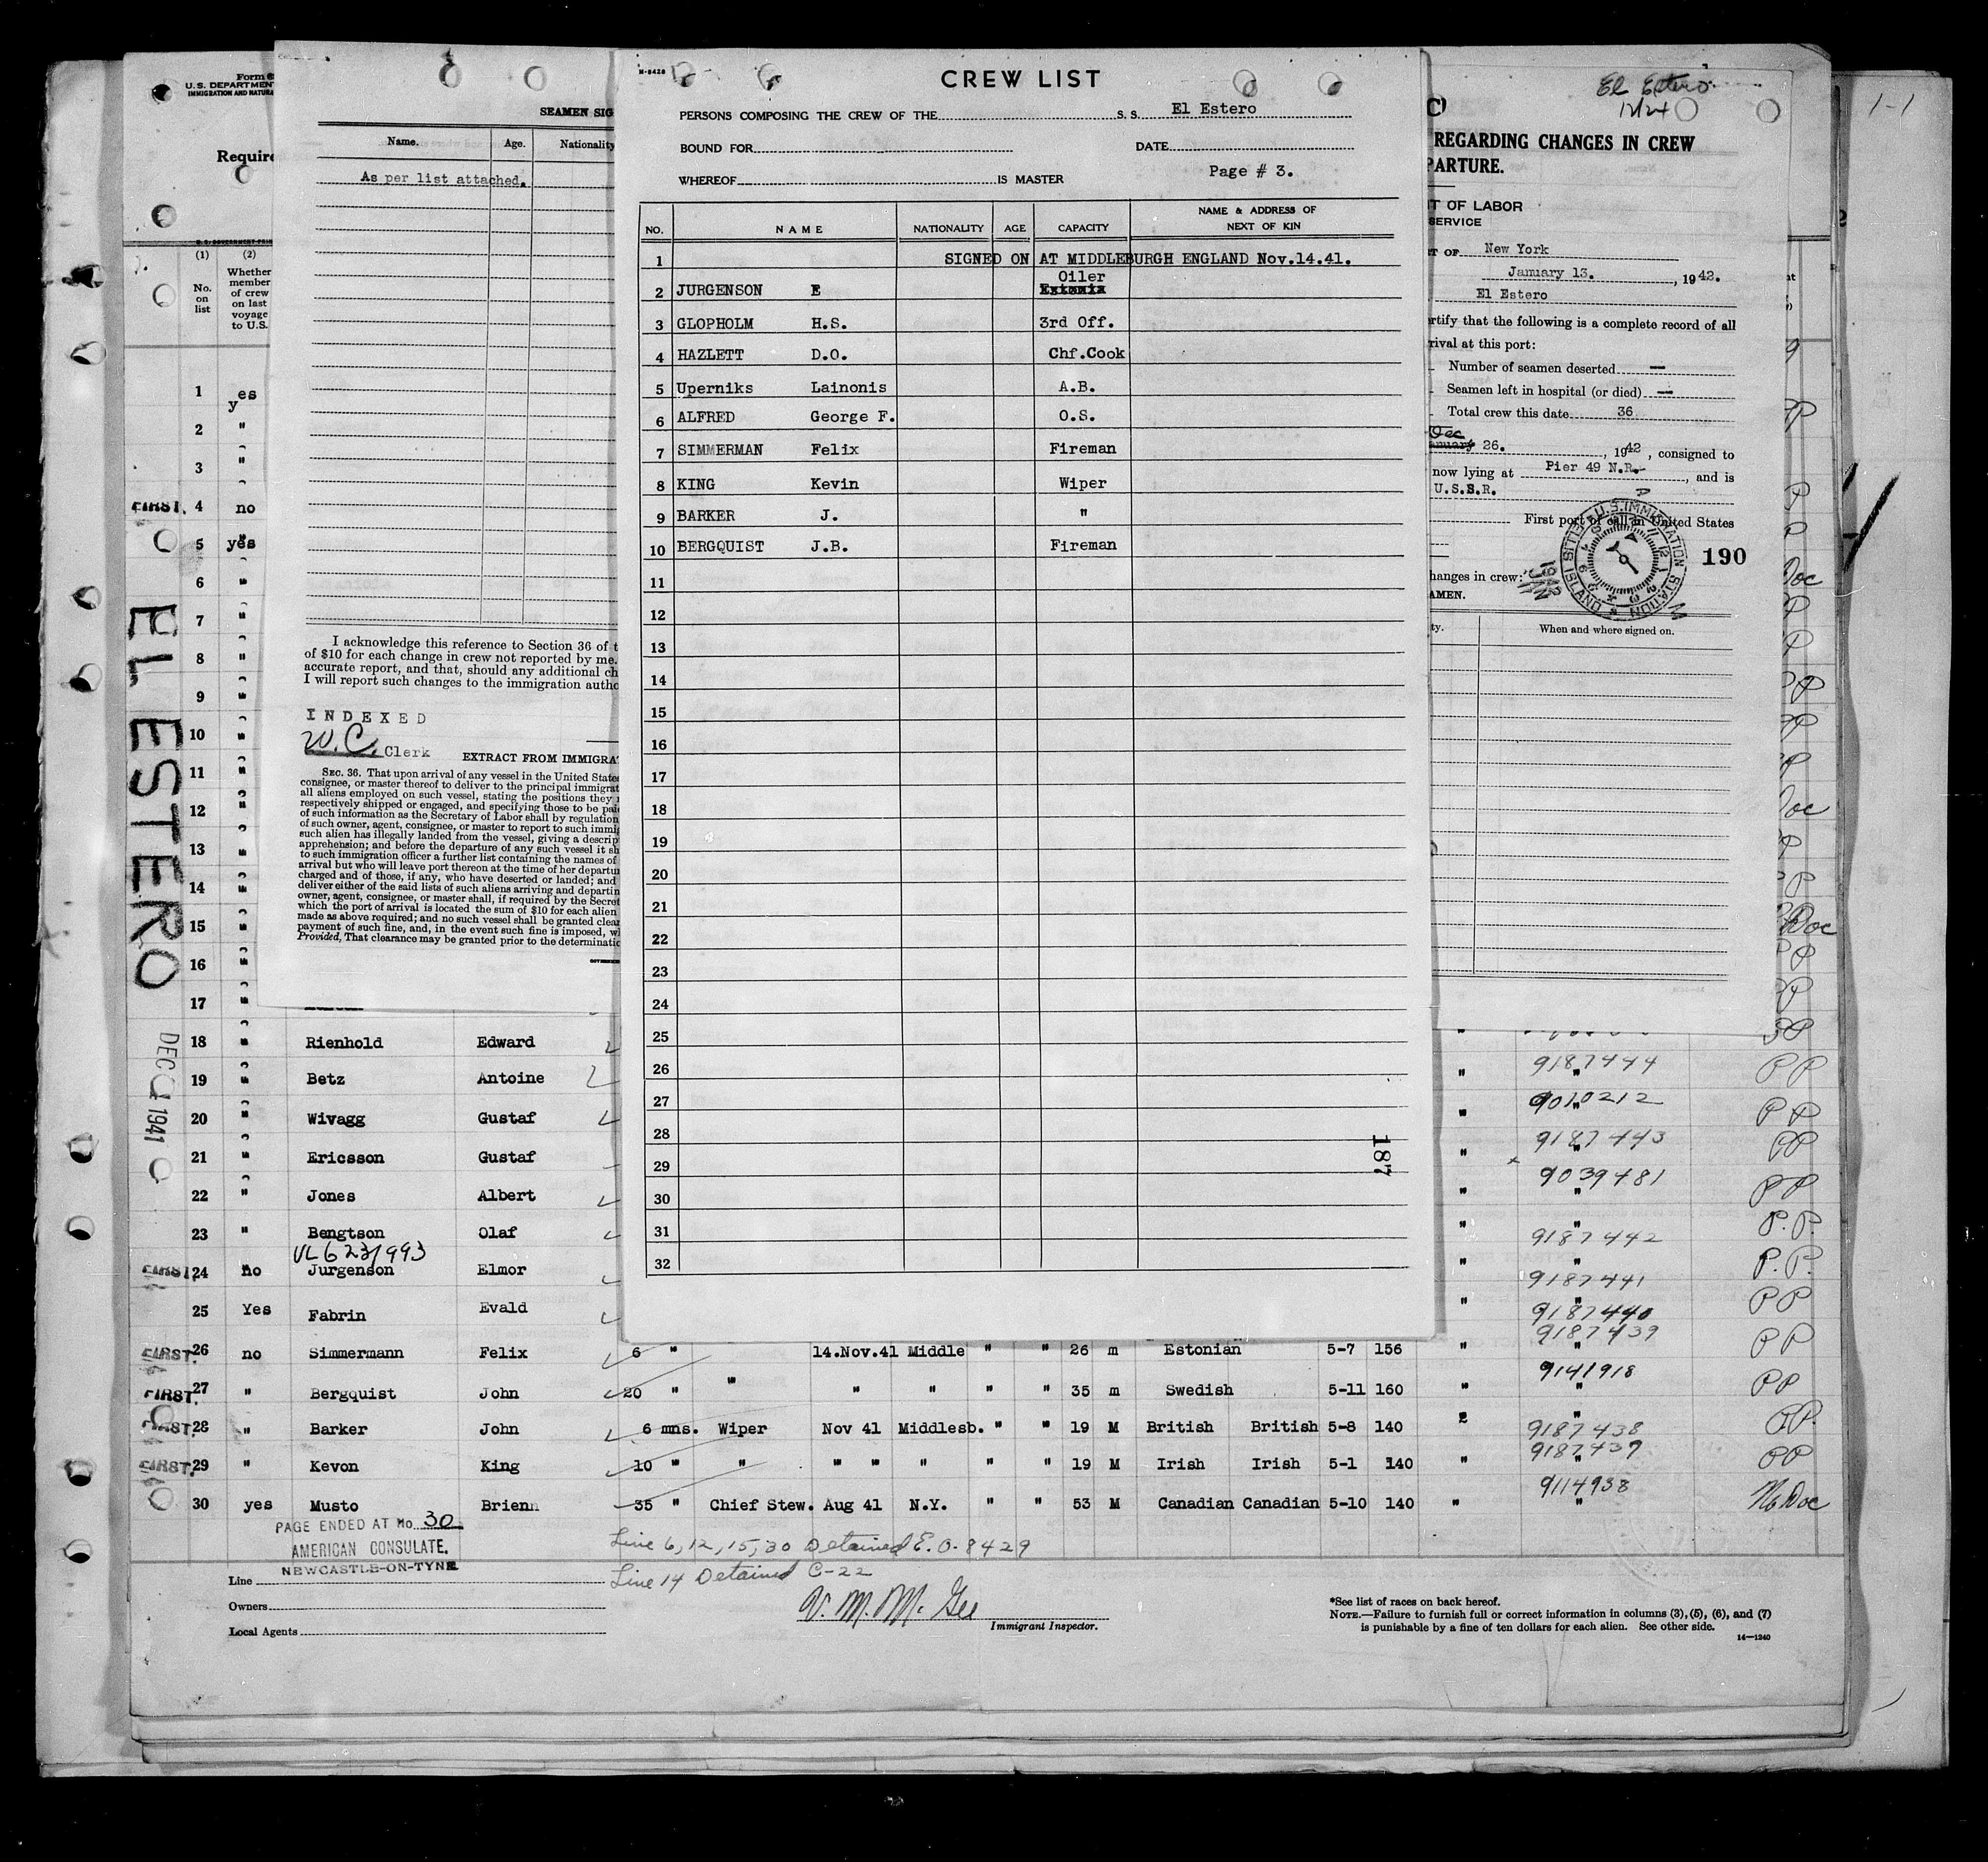 Form 6
U.S. DEPARTMENT
IMMIGRATION AND NATURA
Require
U. S. GOVERNMENT PRIN
(1)
No. on list
(2)
Whether member of crew on last voyage to U.S.
SEAMEN SIG
Name. Age. Nationality
As per list attached.
I acknowledge this reference to Section 36 of t
of $10 for each change in crew not reported by me.
accurate report, and that, should any additional ch
I will report such changes to the immigration autho
INDEXED
W.C. Clerk
EXTRACT FROM IMMIGRA
SEC. 36. That upon arrival of any vessel in the United State
consignee, or master thereof to deliver to the principal immigrat
all aliens employed on such vessel, stating the positions they
respectively shipped or engaged, and specifying those to be pai
of such information as the Secretary of Labor shall by regulation
of such owner, agent, consignee, or master to report to such immig
such alien has illegally landed from the vessel, giving a descrip
apprehension; and before the departure of any such vessel it sh
to such immigration officer a further list containing the names of
arrival but who will leave port thereon at the time of her departu
charged and of those, if any, who have deserted or landed; and
deliver either of the said lists of such aliens arriving and departin
owner, agent, consignee, or master shall, if required by the Secret
which the port of arrival is located the sum of $10 for each alien
made as above required; and no such vessel shall be granted clear
payment of such fine, and, in the event such fine is imposed, w
Provided, That clearance may be granted prior to the determinati
N-8428
CREW LIST
PERSONS COMPOSING THE CREW OF THE S. S. El Estero
BOUND FOR DATE
WHEREOF IS MASTER Page # 3.
NO. NAME NATIONALITY AGE CAPACITY NAME & ADDRESS OF NEXT OF KIN
1 SIGNED ON AT MIDDLEBURGH ENGLAND Nov.14.41.
Oiler
2 JURGENSON E Estonia
3 GLOPHOLM H.S. 3rd Off.
4 HAZLETT D.O. Chf.Cook
5 Uperniks Lainonis A.B.
6 ALFRED George F. O.S.
7 SIMMERMAN Felix Fireman
8 KING Kevin Wiper
9 BARKER J. "
10 BERGQUIST J.B. Fireman
11
12
13
14
15
16
17
18
19
20
21
22
23
24
25
26
27
28
29
30
31
32
187
El Estero
12/24
REGARDING CHANGES IN CREW
PARTURE.
T OF LABOR
SERVICE
T OF New York
January 13. , 1942.
El Estero
rtify that the following is a complete record of all
rival at this port:
Number of seamen deserted —
Seamen left in hospital (or died) —
Total crew this date 36
Dec
anuary 26. , 1942 , consigned to
now lying at Pier 49 N.R. , and is
U.S.S.R.
First port of call in United States
U.S. IMMIGRATION STATION
ELLIS ISLAND
190
hanges in crew:
AMEN.
ty. When and where signed on.
EL ESTERO
DEC 1941
1 yes
2 "
3 "
FIRST. 4 no
5 yes
6 "
7 "
8 "
9 "
10 "
11 "
12 "
13 "
14 "
15 "
16 "
17 "
18 " Rienhold Edward
19 " Betz Antoine " 9187444 PP
20 " Wivagg Gustaf " 9010212 PP
21 " Ericsson Gustaf " 9187443 PP
22 " Jones Albert " 9039481 PP
23 " Bengtson Olaf " 9187442 P.P.
VL 623/993
FIRST. 24 no Jurgenson Elmor " 9187441 P.P.
25 Yes Fabrin Evald " 9187440 PP
FIRST. 26 no Simmermann Felix 6 " 14.Nov.41 Middle " " 26 m Estonian 5-7 156 " 9187439 PP
FIRST. 27 " Bergquist John 20 " " " " " " 35 m Swedish 5-11 160 " 9141918 PP
FIRST. 28 " Barker John 6 mns. Wiper Nov 41 Middlesb. " " 19 M British British 5-8 140 " 9187438 PP.
FIRST. 29 " Kevon King 10 " " " " " " " 19 M Irish Irish 5-1 140 " 9187437 PP
30 yes Musto Brienn 35 " Chief Stew. Aug 41 N.Y. " " 53 M Canadian Canadian 5-10 140 " 9114938 No Doc
PAGE ENDED AT No. 30
AMERICAN CONSULATE.
NEWCASTLE-ON-TYNE
Line 6, 12, 15, 30 Detained E.O. 8429
Line 14 Detained C-22
Line
Owners
Local Agents
V. M. McGee
Immigrant Inspector.
*See list of races on back hereof.
NOTE.—Failure to furnish full or correct information in columns (3), (5), (6), and (7)
is punishable by a fine of ten dollars for each alien. See other side.
14—1240
1-1